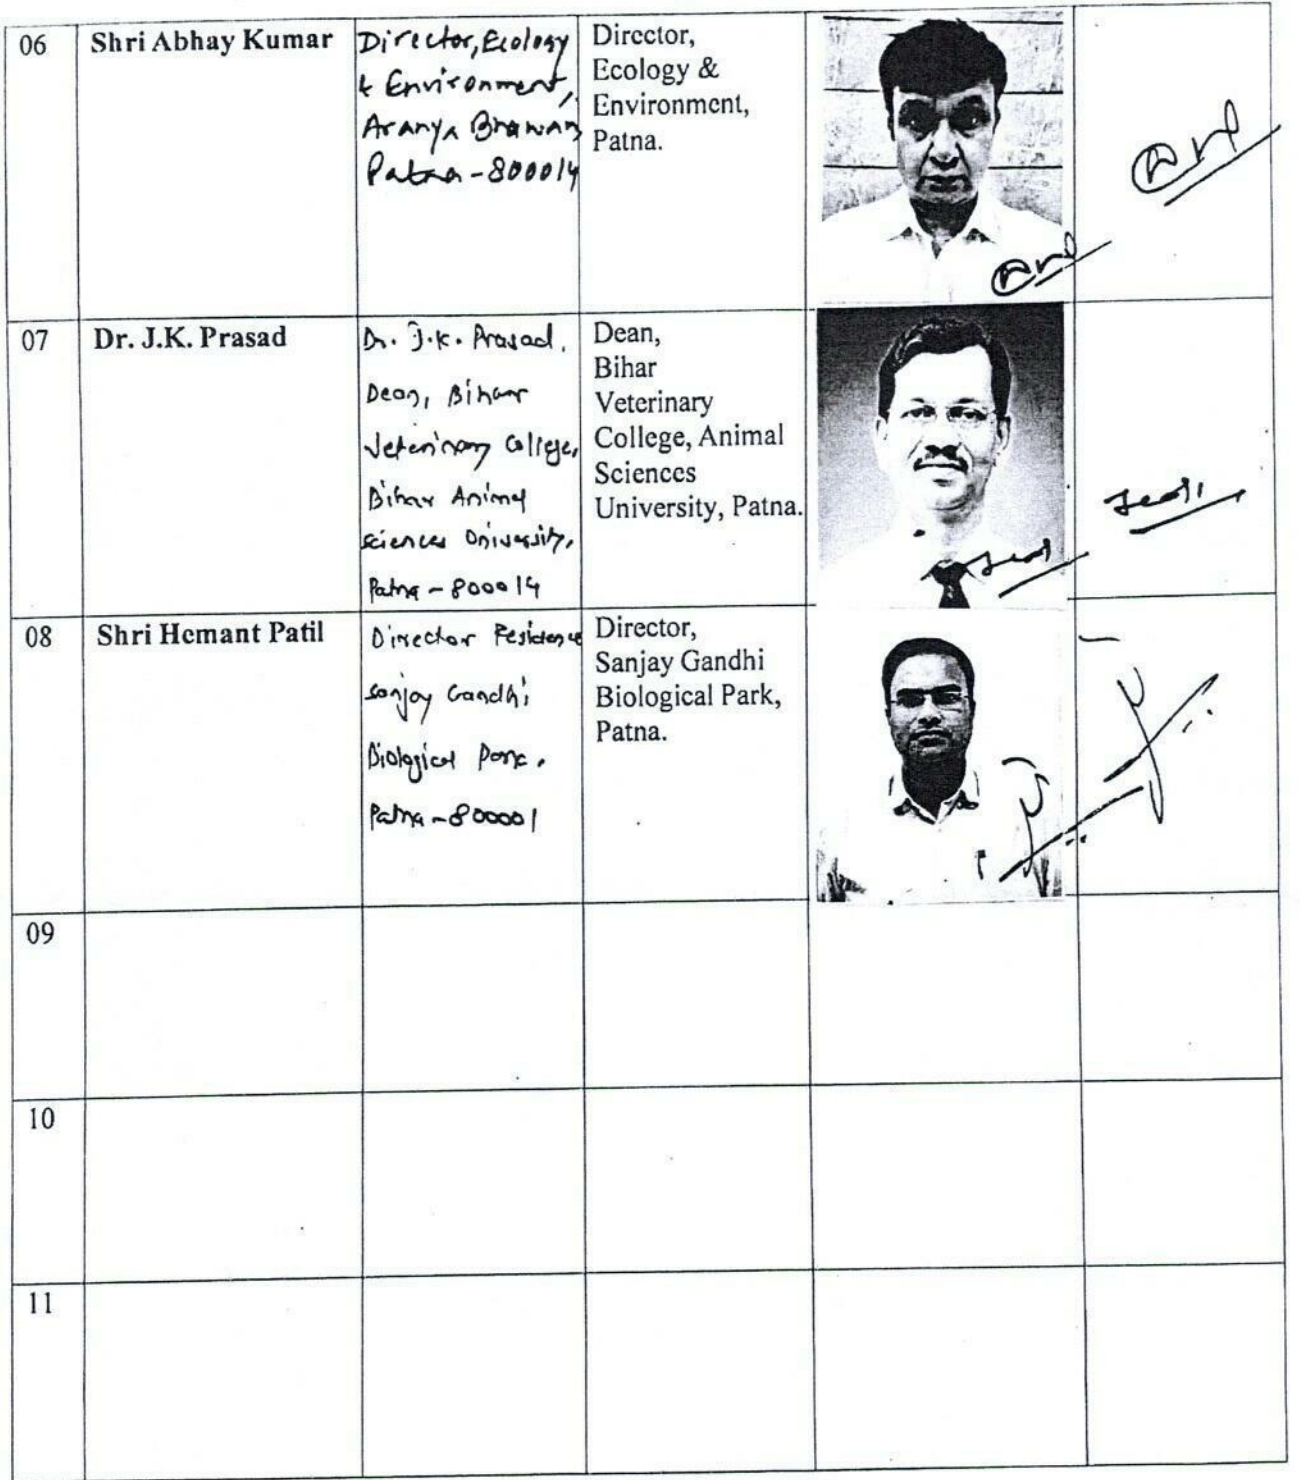 06
Shri Abhay Kumar
Director, Ecology
& Environment,
Aranya Bhawan
Patna-800014
Director,
Ecology &
Environment,
Patna.
07
Dr. J.K. Prasad
Dr. J.K. Prasad,
Dean, Bihar
Veterinary College,
Bihar Animal
sciences University,
Patna-800014
Dean,
Bihar
Veterinary
College, Animal
Sciences
University, Patna.
08
Shri Hemant Patil
Director Residence
Sanjay Gandhi
Biological Park,
Patna-800001
Director,
Sanjay Gandhi
Biological Park,
Patna.
09
10
11